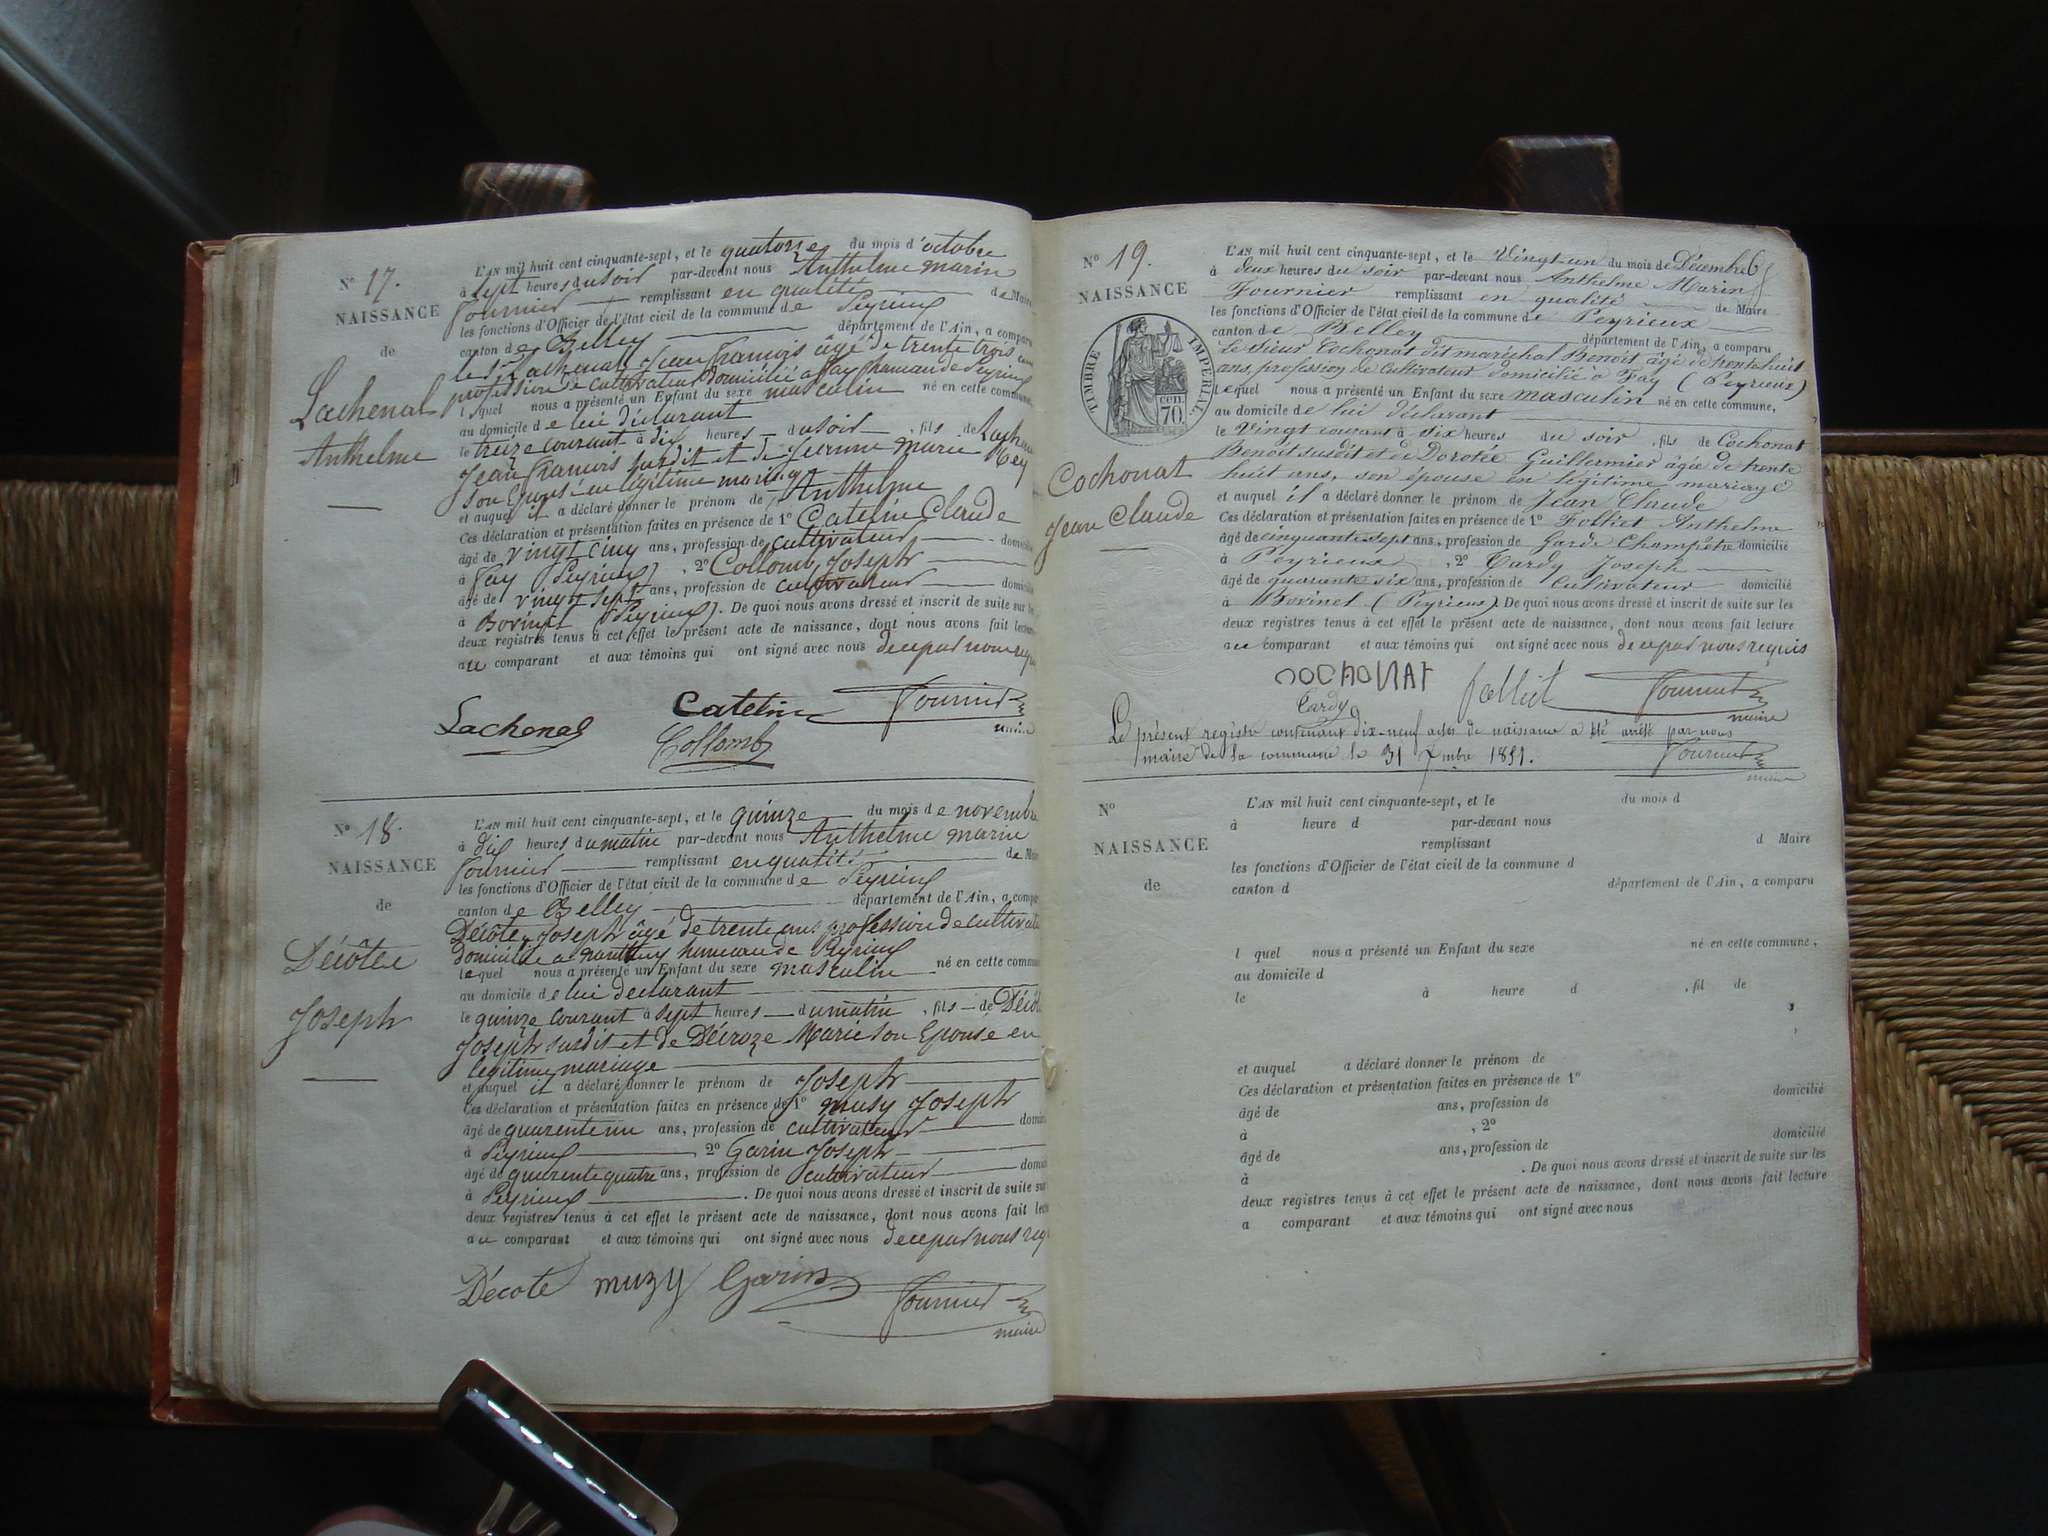 N° 17.
NAISSANCE
de
Lachenal
Anthelme
L'AN mil huit cent cinquante-sept, et le quatorze du mois d'octobre
à sept heures du soir par-devant nous Anthelme marin
fournier remplissant en qualité de Maire
les fonctions d'Officier de l'état civil de la commune de Peyrieux
canton de Belley département de l'Ain, a comparu
le Sr Lachenal Jean françois âgé de trente trois ans
profession de cultivateur domicilié a fay hameau de Peyrieux
lequel nous a présenté un Enfant du sexe masculin né en cette commune,
au domicile de lui déclarant
le treize courant à dix heures du soir, fils de Lachenal
Jean françois susdit et de Marie
son Epouse en légitime mariage
et auquel il a déclaré donner le prénom de Anthelme
Ces déclaration et présentation faites en présence de 1° Catelin Claude
âgé de vingt cinq ans, profession de cultivateur domicilié
à fay (Peyrieux), 2° Collomb Joseph
âgé de vingt sept ans, profession de cultivateur domicilié
à Bovinel (Peyrieux). De quoi nous avons dressé et inscrit de suite sur les
deux registres tenus à cet effet le présent acte de naissance, dont nous avons fait lecture
au comparant et aux témoins qui ont signé avec nous de ce par nous requis
Lachenal Catelin Fournier
Collomb maire
N° 18.
NAISSANCE
de
Décôte
Joseph
L'AN mil huit cent cinquante-sept, et le quinze du mois de novembre
à dix heures du matin par-devant nous Anthelme marin
fournier remplissant en qualité de Maire
les fonctions d'Officier de l'état civil de la commune de Peyrieux
canton de Belley département de l'Ain, a comparu
Décôte Joseph âgé de trente ans profession de cultivateur
domicilié a hameau de Peyrieux
lequel nous a présenté un Enfant du sexe masculin né en cette commune
au domicile de lui déclarant
le quinze courant à sept heures du matin, fils de Décôte
Joseph susdit et de Décroze Marie son Epouse en
légitime mariage
et auquel il a déclaré donner le prénom de Joseph
Ces déclaration et présentation faites en présence de 1° musy Joseph
âgé de quarente un ans, profession de cultivateur domicilié
à Peyrieux 2° Garin Joseph
âgé de quarente quatre ans, profession de cultivateur domicilié
à Peyrieux. De quoi nous avons dressé et inscrit de suite sur
deux registres tenus à cet effet le présent acte de naissance, dont nous avons fait lecture
au comparant et aux témoins qui ont signé avec nous de ce par nous requis
Décote muzy Garin Fournier
maire
N° 19.
NAISSANCE
TIMBRE IMPERIAL
70 CEN.
Cochonat
Jean Claude
L'AN mil huit cent cinquante-sept, et le Vingt-un du mois de Décembre
à deux heures du soir par-devant nous Anthelme Marin
Fournier remplissant en qualité de Maire
les fonctions d'Officier de l'état civil de la commune de Peyrieux
canton de Belley département de l'Ain, a comparu
le sieur Cochonat dit maréchal Benoit âgé de trente huit
ans, profession de Cultivateur domicilié à Fay (Peyrieux)
lequel nous a présenté un Enfant du sexe masculin né en cette commune,
au domicile de lui déclarant
le Vingt courant à six heures du soir, fils de Cochonat
Benoit susdit et de Dorotée Guillermier âgée de trente
huit ans, son épouse en légitime mariage
et auquel il a déclaré donner le prénom de Jean Claude
Ces déclaration et présentation faites en présence de 1° Folliet Anthelme
âgé de cinquante sept ans, profession de Garde Champêtre domicilié
à Peyrieux, 2° Tardy Joseph
âgé de quarante six ans, profession de Cultivateur domicilié
à Bovinel (Peyrieux). De quoi nous avons dressé et inscrit de suite sur les
deux registres tenus à cet effet le présent acte de naissance, dont nous avons fait lecture
au comparant et aux témoins qui ont signé avec nous de ce par nous requis
COCHONAT folliet Fournier
Tardy maire
Le présent registre contenant dix-neuf actes de naissance a été arrêté par nous
maire de la commune le 31 Xmbre 1857. Fournier
maire
N°
NAISSANCE
de
L'AN mil huit cent cinquante-sept, et le du mois d
à heure d par-devant nous
remplissant d Maire
les fonctions d'Officier de l'état civil de la commune d
canton d département de l'Ain, a comparu
l quel nous a présenté un Enfant du sexe né en cette commune,
au domicile d
le à heure d , fil de
,
et auquel a déclaré donner le prénom de
Ces déclaration et présentation faites en présence de 1°
âgé de ans, profession de domicilié
à , 2°
âgé de ans, profession de domicilié
à . De quoi nous avons dressé et inscrit de suite sur les
deux registres tenus à cet effet le présent acte de naissance, dont nous avons fait lecture
a comparant et aux témoins qui ont signé avec nous